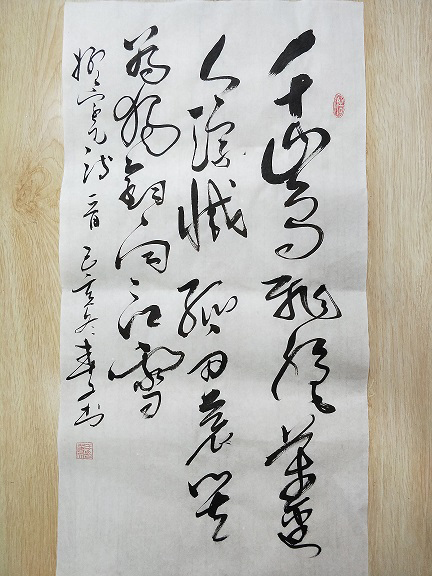 千山鸟飛絶萬逕
人踪滅孤舟蓑笠
翁獨釣寒江雪
柳宗元诗一首己亥冬書